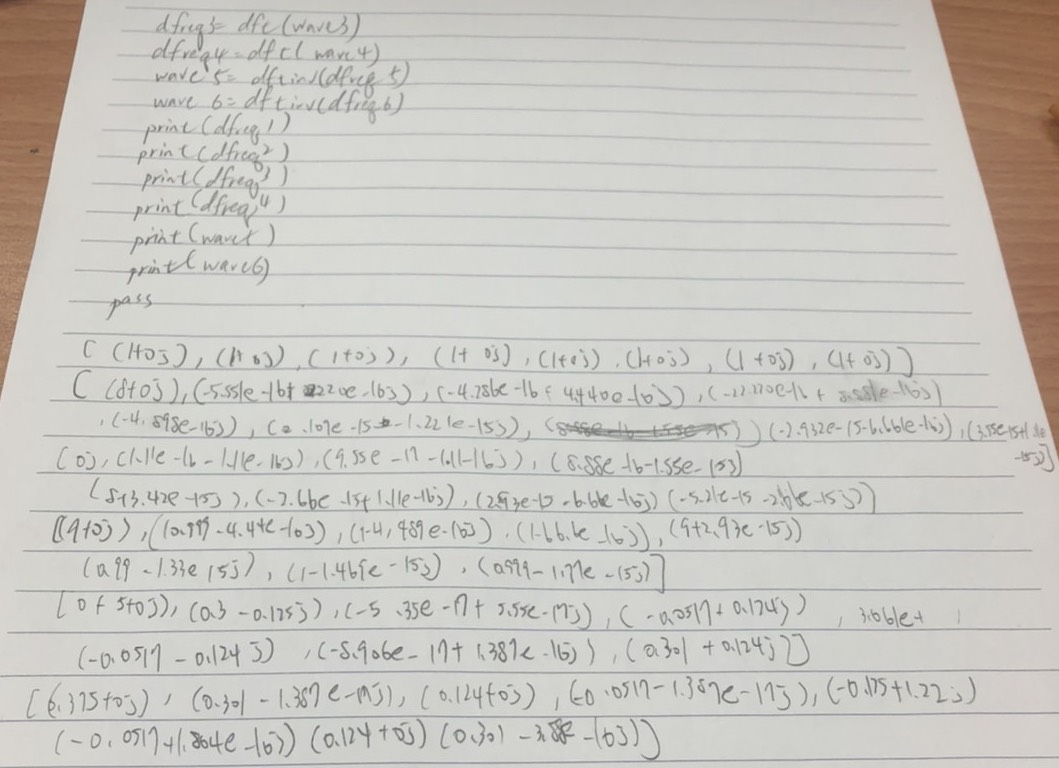 dfreq3= dft(wave3)
dfreq4=dft( wave4)
wave 5= dftinv(dfreq 5)
wave 6= dftinv(dfreq6)
print(dfreq1)
print(dfreq2)
print(dfreq3)
print(dfreq4)
print(wave5)
print(wave6)
pass
[ (1+0j), (1+0j), (1+0j), (1+ 0j), (1+0j), (1+0j), (1+0j), (1+0j)]
[ (8+0j), (-5.551e-16+ 2220e-16j), (-4.286e-16+ 4.440e-16j),
, (-4.898e-16j), -1.221e-15j), (-2.932e-15-6.661e-16j),
[0j, (1.11e-16-1.11e-16j), (9.55e-17-1.11-16j), (8.88e-16-1.55e-15j)
(8+3.42e-15j), (-7.66e-15+1.11e-16j), (2.93e-15-6.66e-16j) (-5.21e-15
[(9+0j), (0.999-4.44e-16j), (1-4.489e-16j), (1-66.6e-16j), (9+2.93e-15j)
(0.99-1.33e15j), (1-1.469e-15j), (0.999-1.77e-15j)]
[0+5+0j), (0.3-0.125j), (-5.35e-17+5.55e-17j), (-0.0517+0.124j), 3.061e+
(-0.0517-0.124j), (-8.906e-17+1.387e-16j), (0.301+0.124j)]
[6.375+0j), (0.301-1.387e-17j), (0.124+0j), (-0.0517-1.387e-17j), (-0.125+1.22j)
(-0.0517+1.804e-16j) (0.124+0j) (0.301